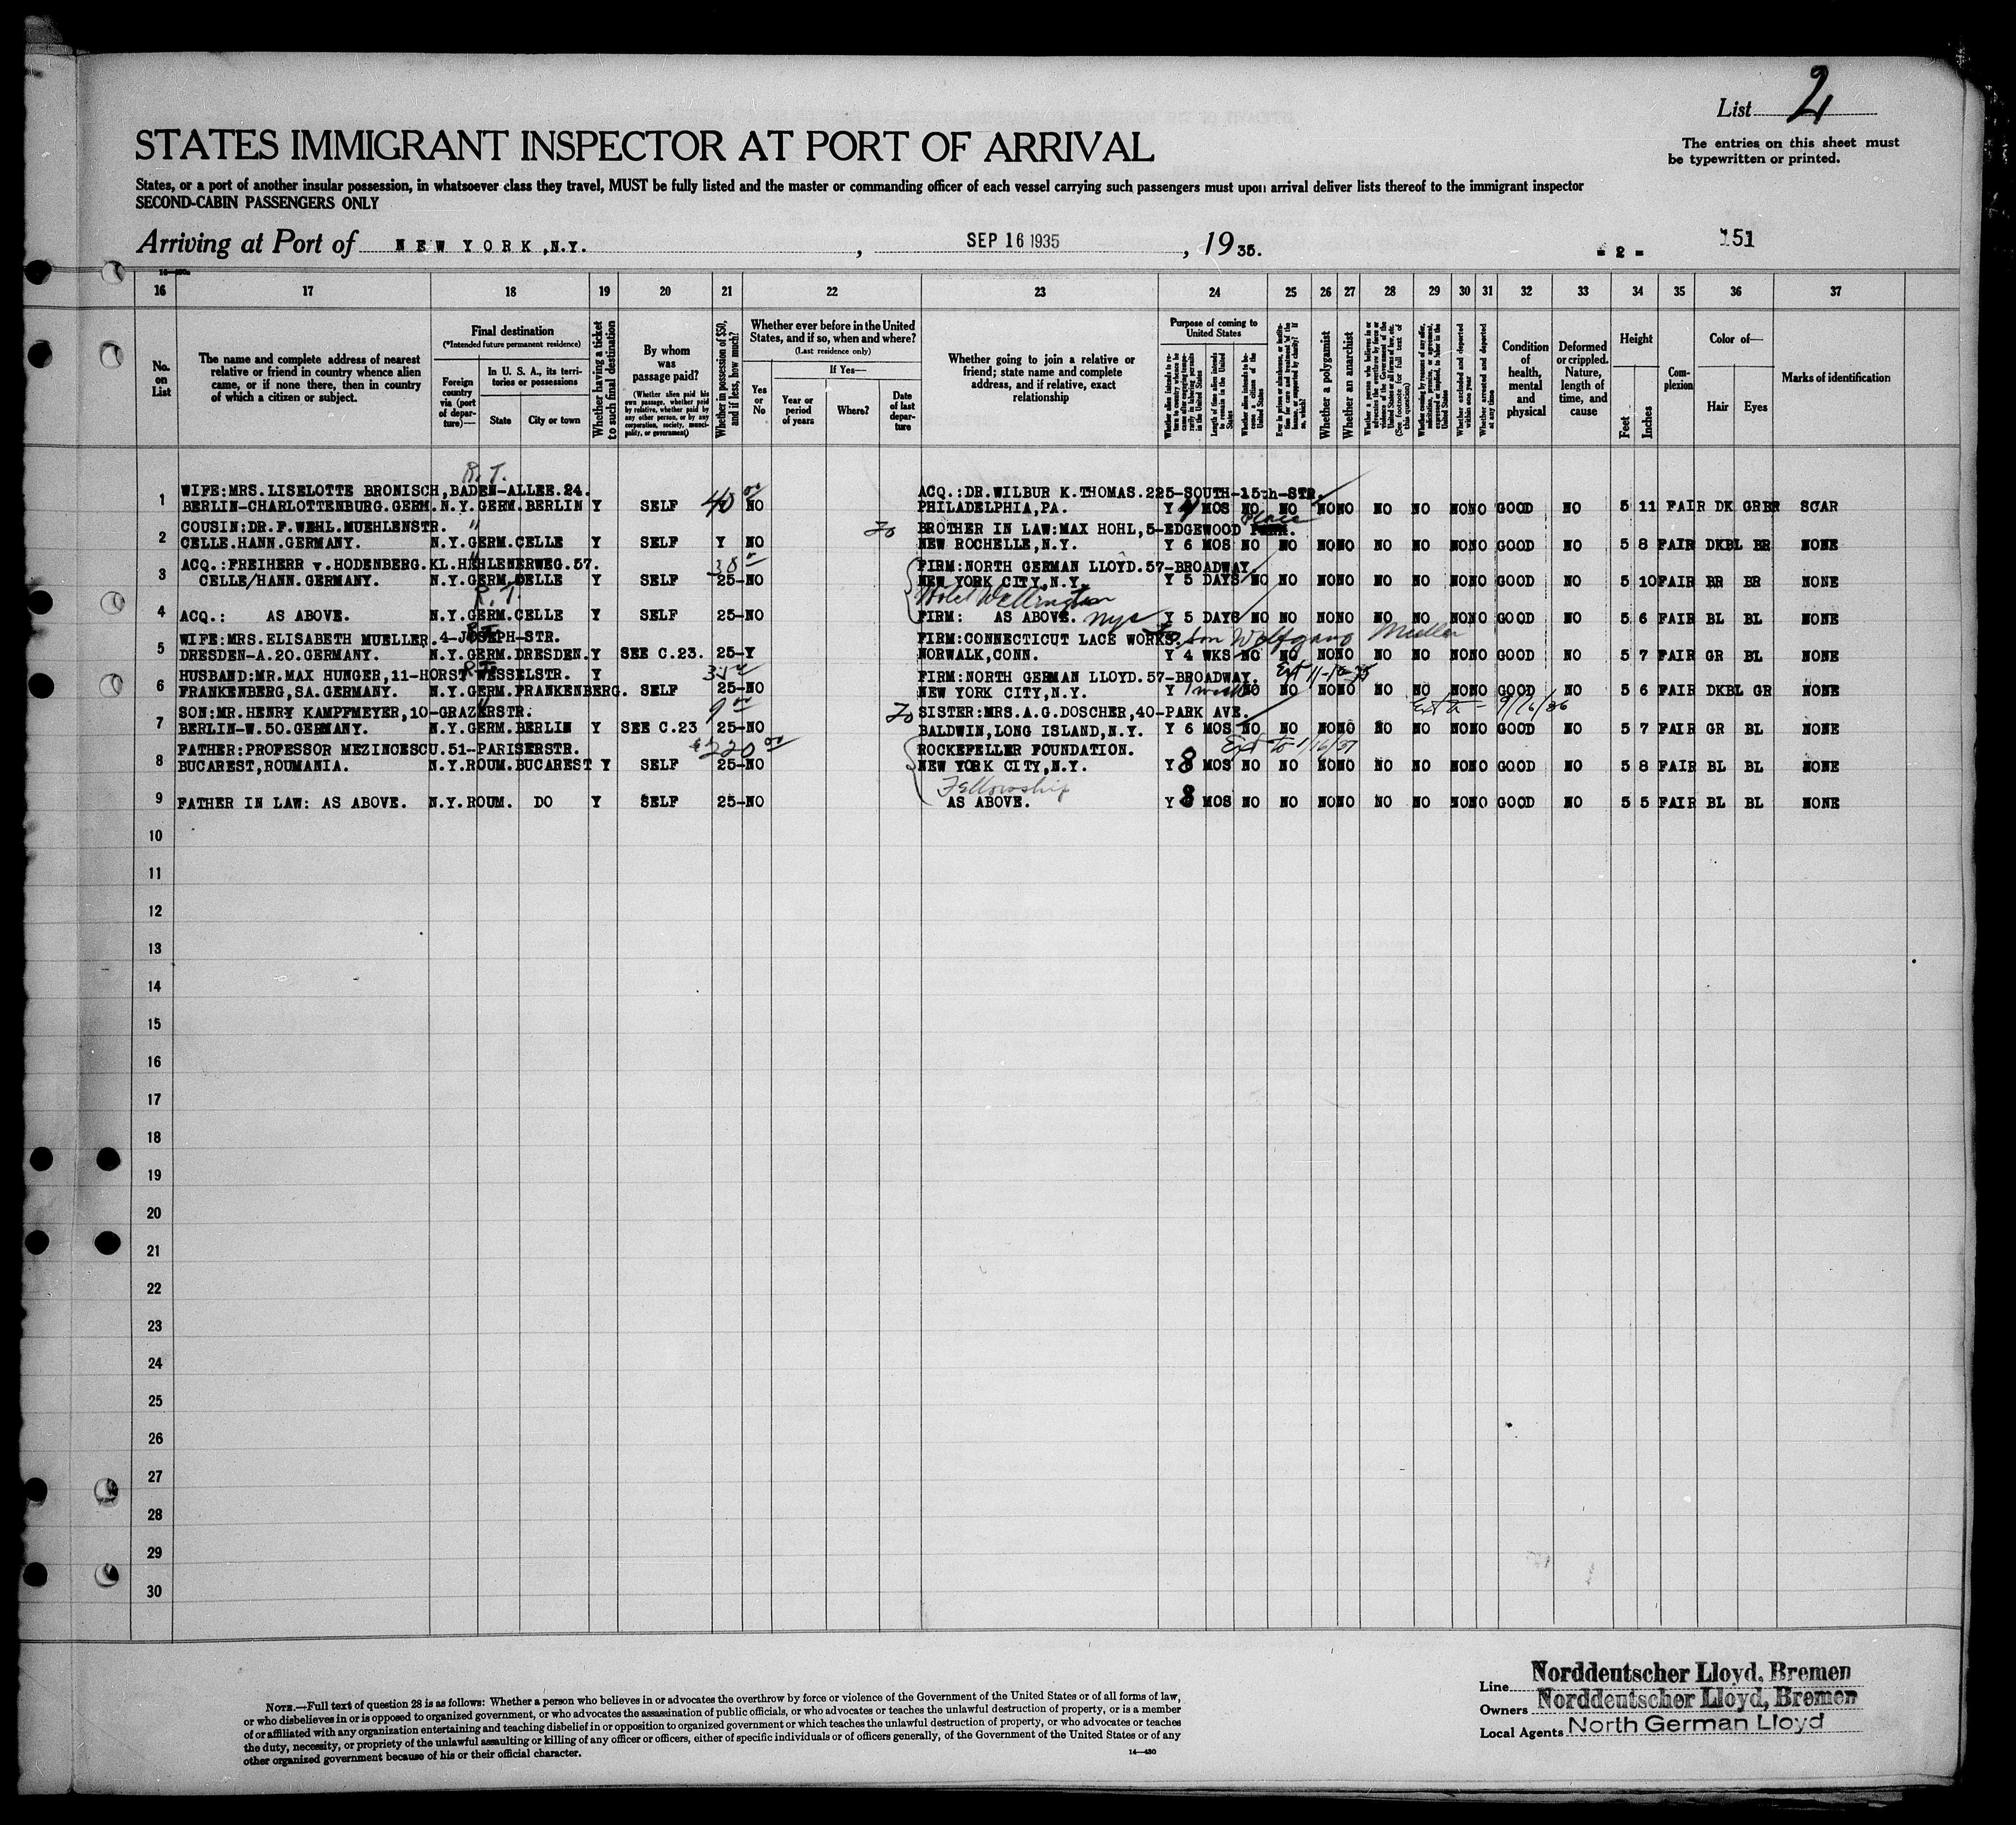 List 2
STATES IMMIGRANT INSPECTOR AT PORT OF ARRIVAL
The entries on this sheet must
be typewritten or printed.
States, or a port of another insular possession, in whatsoever class they travel, MUST be fully listed and the master or commanding officer of each vessel carrying such passengers must upon arrival deliver lists thereof to the immigrant inspector
SECOND-CABIN PASSENGERS ONLY
Arriving at Port of NEW YORK, N.Y. , SEP 16 1935 , 19 35. - 2 - 151
16 17 18 19 20 21 22 23 24 25 26 27 28 29 30 31 32 33 34 35 36 37
No. on List
The name and complete address of nearest relative or friend in country whence alien came, or if none there, then in country of which a citizen or subject.
Final destination
(*Intended future permanent residence)
Foreign country via (port of departure)—
In U. S. A., its territories or possessions
State
City or town
Whether having a ticket to such final destination
By whom was passage paid?
(Whether alien paid his own passage, whether paid by relative, whether paid by any other person, or by any corporation, society, municipality, or government)
Whether in possession of $50, and if less, how much?
Whether ever before in the United States, and if so, when and where?
(Last residence only)
Yes or No
If Yes—
Year or period of years
Where?
Date of last departure
Whether going to join a relative or friend; state name and complete address, and if relative, exact relationship
Purpose of coming to United States
Length of time alien intends to remain in the United States
Whether alien intends to become a citizen of the United States
Whether a polygamist
Whether an anarchist
(See footnote for full text of this question)
Whether excluded and deported within one year
Whether arrested and deported at any time
Condition of health, mental and physical
Deformed or crippled. Nature, length of time, and cause
Height
Feet
Inches
Complexion
Color of—
Hair
Eyes
Marks of identification
R.T.
1 WIFE:MRS.LISELOTTE BRONISCH,BADEN-ALLEE.24. 40 00 ACQ.:DR.WILBUR K.THOMAS.225-SOUTH-15th-STR.
BERLIN-CHARLOTTENBURG.GERM.N.Y.GERM.BERLIN Y SELF NO PHILADELPHIA,PA. Y 4 MOS NO NO NO NO NO NO NO NO GOOD NO 5 11 FAIR DK GR BR SCAR
2 COUSIN:DR.F.WEHL.MUEHLENSTR. " To BROTHER IN LAW:MAX HOHL,5-EDGEWOOD Place
CELLE.HANN.GERMANY. N.Y.GERM.CELLE Y SELF Y NO NEW ROCHELLE,N.Y. Y 6 MOS NO NO NO NO NO NO NO NO GOOD NO 5 8 FAIR DKBL BR NONE
3 ACQ.:FREIHERR v.HODENBERG.KL.HEHLENERWEG.57. " FIRM:NORTH GERMAN LLOYD.57-BROADWAY.
CELLE/HANN.GERMANY. N.Y.GERM.CELLE Y SELF 25-NO NEW YORK CITY,N.Y. Y 5 DAYS NO NO NO NO NO NO NO NO GOOD NO 5 10 FAIR BR BR NONE
R.T. Hotel Wellington
4 ACQ.: AS ABOVE. N.Y.GERM.CELLE Y SELF 25-NO FIRM: AS ABOVE. nyc Y 5 DAYS NO NO NO NO NO NO NO NO GOOD NO 5 6 FAIR BL BL NONE
5 WIFE:MRS.ELISABETH MUELLER.4-JOSEPH-STR. R.T. FIRM:CONNECTICUT LACE WORKS. To son Wolfgang Mueller
DRESDEN-A.20.GERMANY. N.Y.GERM.DRESDEN. Y SEE C.23. 25-Y NORWALK,CONN. Y 4 WKS NO NO NO NO NO NO NO NO GOOD NO 5 7 FAIR GR BL NONE
6 HUSBAND:MR.MAX HUNGER,11-HORST WESSELSTR. R.T. Y FIRM:NORTH GERMAN LLOYD.57-BROADWAY.
FRANKENBERG,SA.GERMANY. N.Y.GERM.FRANKENBERG. SELF 25-NO NEW YORK CITY,N.Y. Y 1 week NO NO NO NO NO NO NO NO GOOD NO 5 6 FAIR DKBL GR NONE
7 SON:MR.HENRY KAMPFMEYER,10-GRAZERSTR. " To SISTER:MRS.A.G.DOSCHER,40-PARK AVE.
BERLIN-W.50.GERMANY. N.Y.GERM.BERLIN Y SEE C.23 25-NO BALDWIN,LONG ISLAND,N.Y. Y 6 MOS NO NO NO NO NO NO NO NO GOOD NO 5 7 FAIR GR BL NONE
8 FATHER:PROFESSOR MEZINCESCU.51-PARISERSTR. 220 00 ROCKEFELLER FOUNDATION. Ext to 1/16/37
BUCAREST,ROUMANIA. N.Y.ROUM.BUCAREST Y SELF 25-NO NEW YORK CITY,N.Y. Y 8 MOS NO NO NO NO NO NO NO NO GOOD NO 5 8 FAIR BL BL NONE
Fellowship
9 FATHER IN LAW: AS ABOVE. N.Y.ROUM. DO Y SELF 25-NO AS ABOVE. Y 8 MOS NO NO NO NO NO NO NO NO GOOD NO 5 5 FAIR BL BL NONE
10
11
12
13
14
15
16
17
18
19
20
21
22
23
24
25
26
27
28
29
30
NOTE.—Full text of question 28 is as follows: Whether a person who believes in or advocates the overthrow by force or violence of the Government of the United States or of all forms of law,
or who disbelieves in or is opposed to organized government, or who advocates the assassination of public officials, or who advocates or teaches the unlawful destruction of property, or is a member
of or affiliated with any organization entertaining and teaching disbelief in or opposition to organized government or which teaches the unlawful destruction of property, or who advocates or teaches
the duty, necessity, or propriety of the unlawful assaulting or killing of any officer or officers, either of specific individuals or of officers generally, of the Government of the United States or of any
other organized government because of his or their official character.
14—430
Line Norddeutscher Lloyd, Bremen
Owners Norddeutscher Lloyd, Bremen
Local Agents North German Lloyd